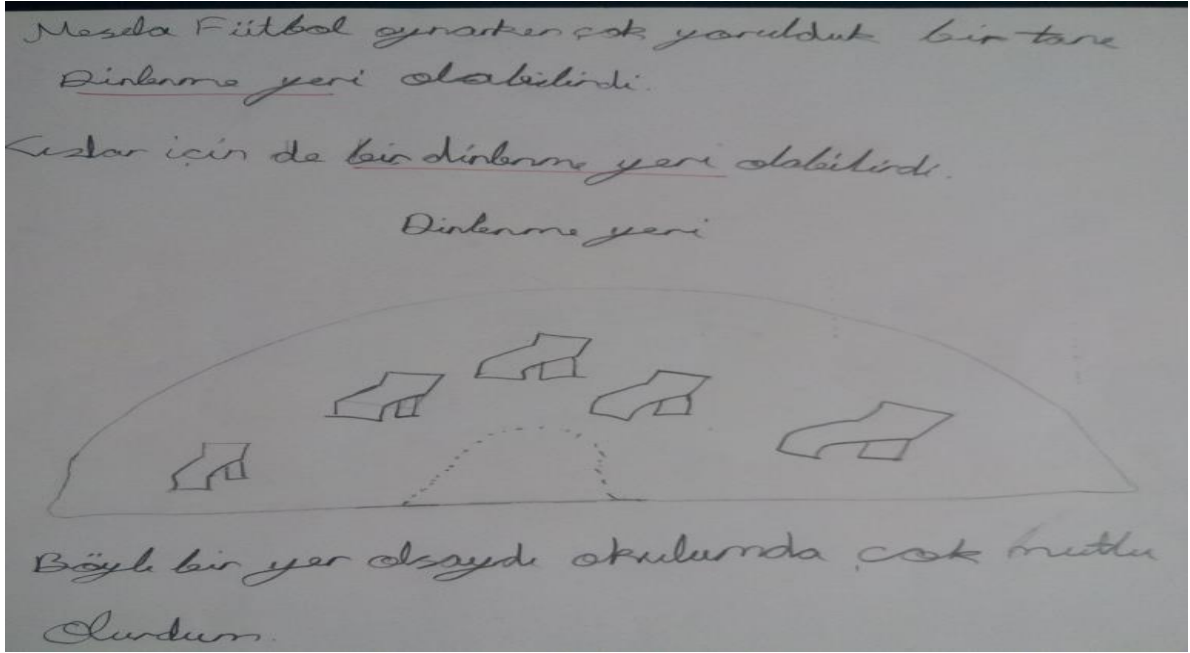 Mesela Fütbol oynarken çok yorulduk bir tane
Dinlenme yeri olabilirdi.
Kızlar için de bir dinlenme yeri olabilirdi.
Dinlenme yeri
Böyle bir yer olsaydı okulumda çok mutlu
olurdum.